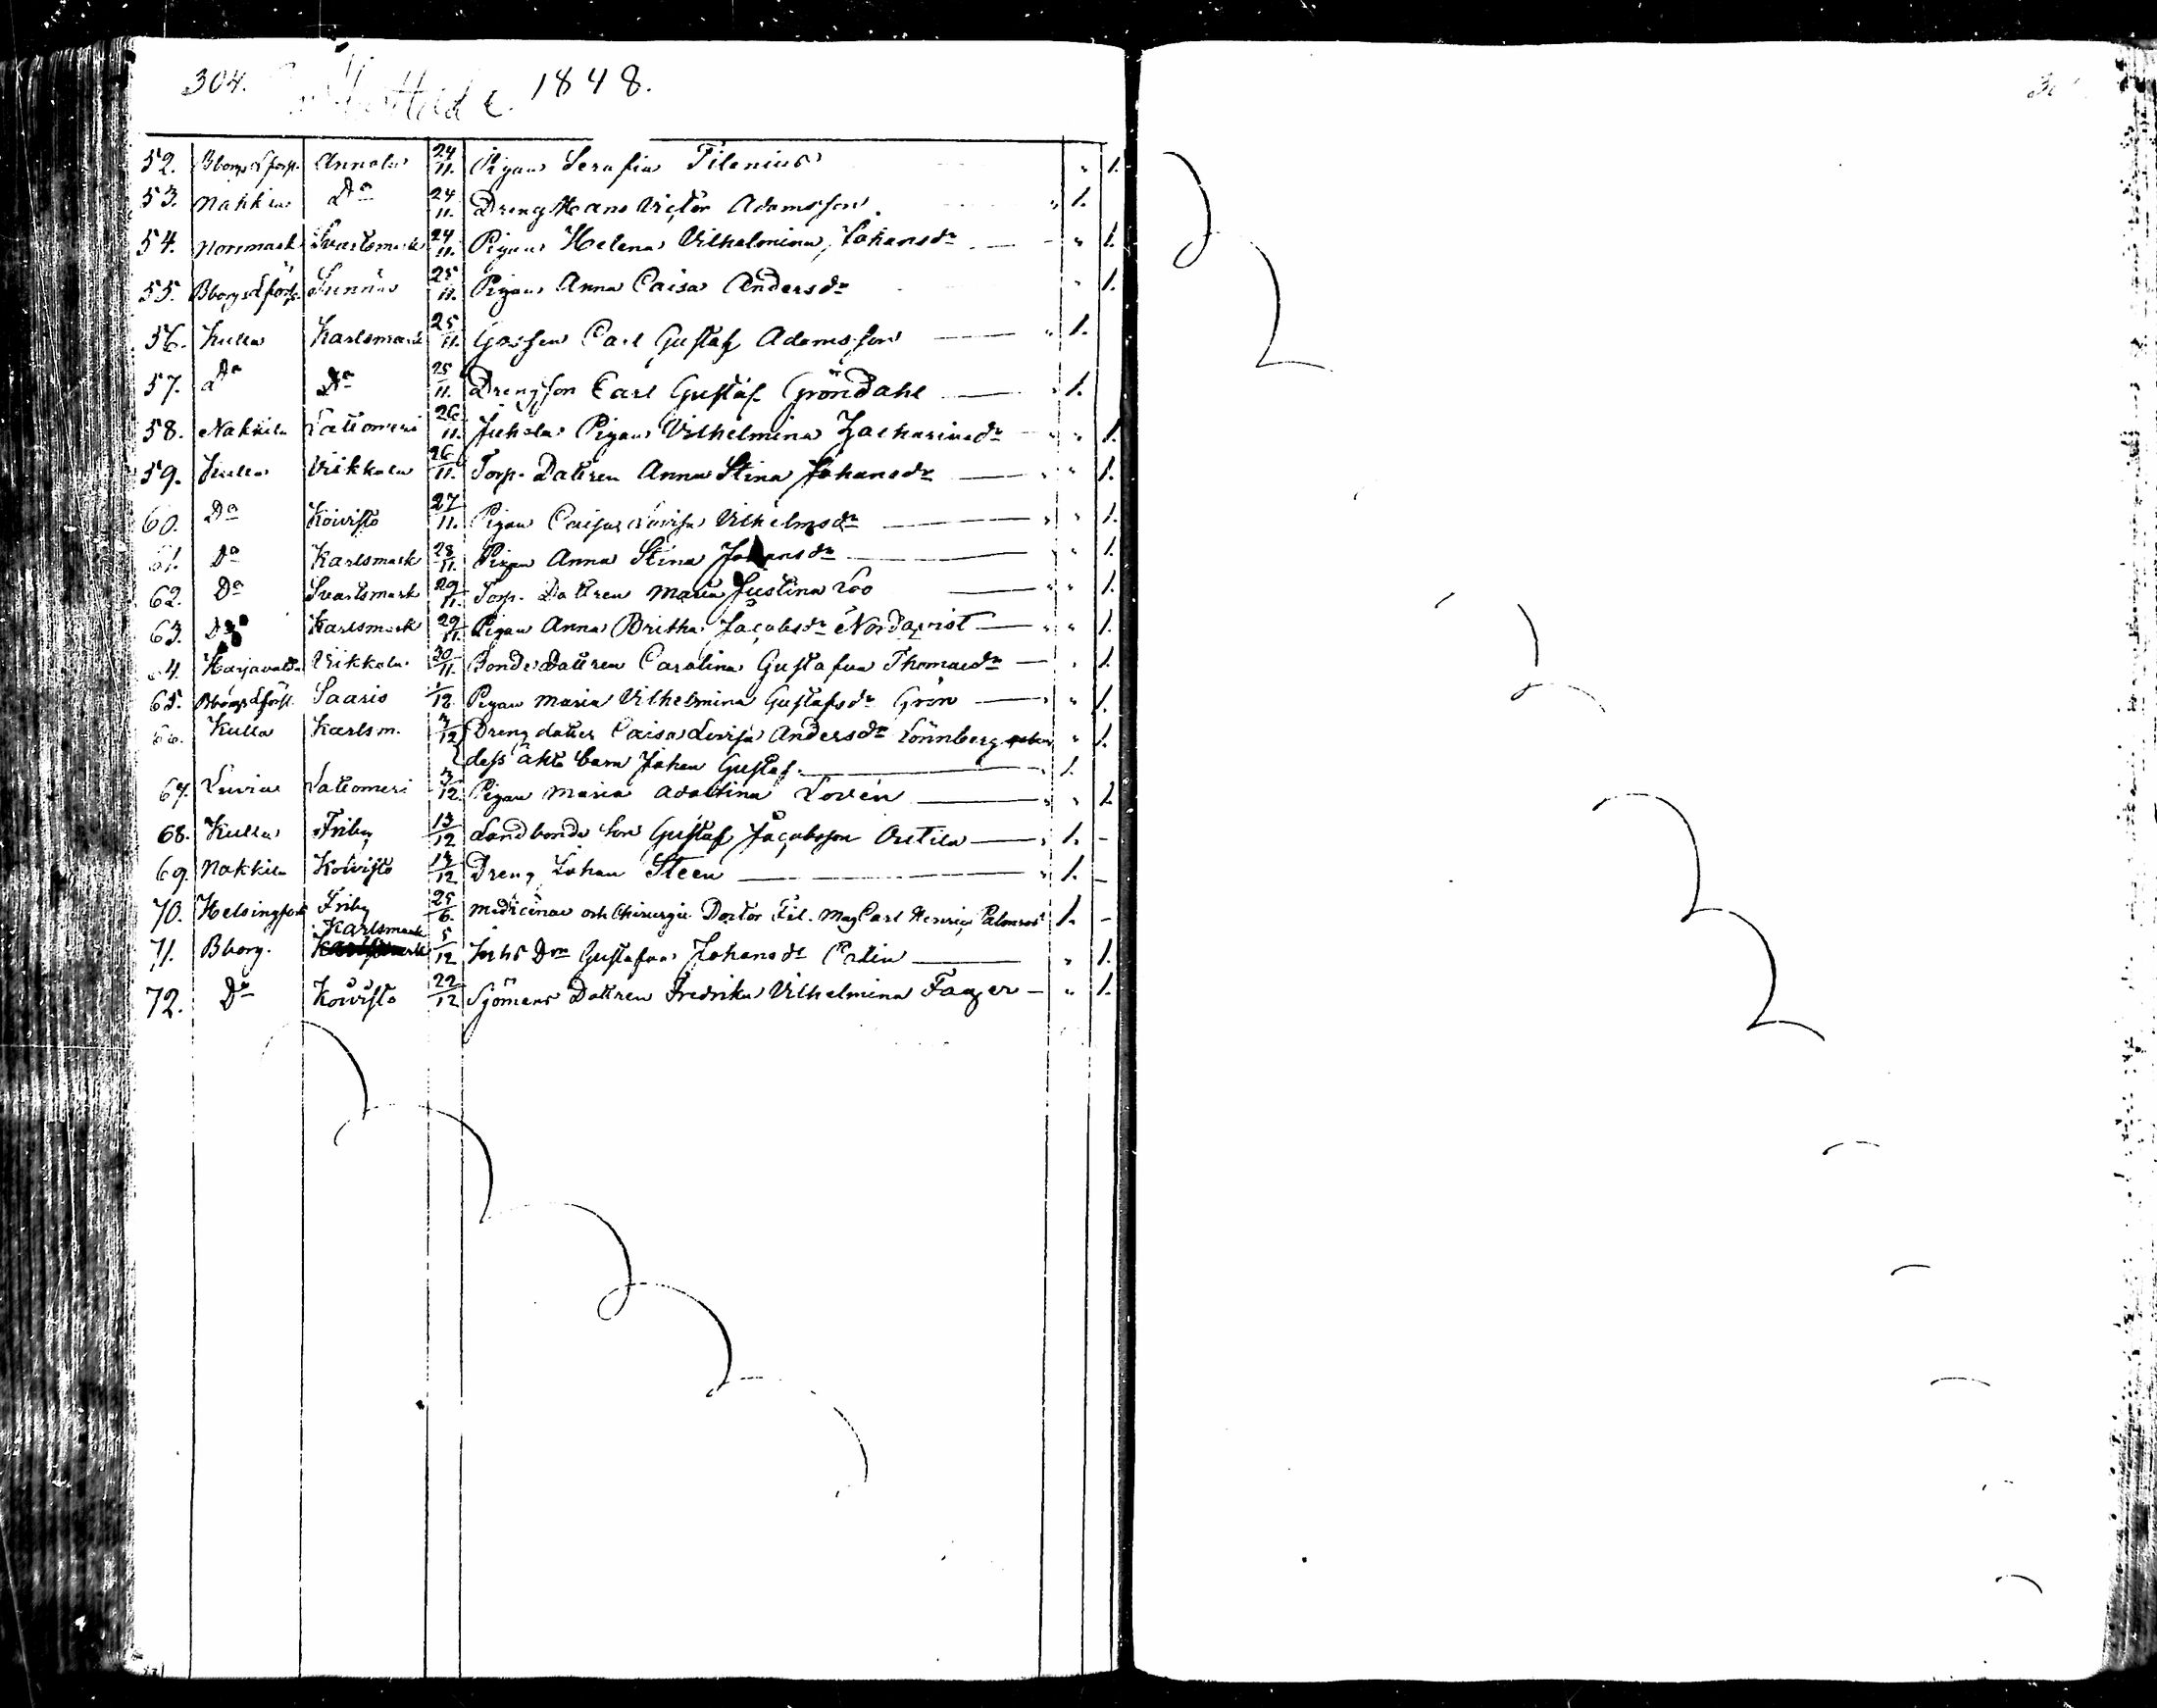 304. 1848.
52. Bborgs Lförs. Annola 24/11. Pigan Serafia Tilenius " 1.
53. Nakkila Do 24/11. Dreng Hans Victor Adamsson. " 1.
54. Norrmark Svartsmark 24/11. Pigan Helena Vilhelmina Johansdr " 1.
55. Bborgs Lförs. Sunnäs 25/11. Pigan Anna Caisa Andersdr " 1.
56. Kulla Karlsmark 25/11. Gossen Carl Gustaf Adamsson " 1.
57. Do Do 25/11. Drengson Carl Gustaf Gröndahl " 1.
58. Nakkila Lattomeri 26/11. Pigan Vilhelmina Zachariædr " " 1.
59. Kulla Vikkala 26/11. Torp. Dattren Anna Stina Johansdr " " 1.
60. Do Koivisto 27/11. Pigan Caisa Lovisa Vilhelmsdr " " 1.
61. Do Karlsmark 28/11. Pigan Anna Stina Johansdr " " 1.
62. Do Svartsmark 29/11. Torp. Dattren Maria Justina Roo " " 1.
63. Do Karlsmark 29/11. Pigan Anna Britha Jacobsdr Nordqvist " " 1.
64. Harjavalda Vikkala 30/11. Bonde Dattren Carolina Gustafva Thomasdr " 1.
65. Bborgs Lförs. Saaris 1/12. Pigan Maria Vilhelmina Gustafsdr Grön " " 1.
66. Kulla Karlsm. 3/12 Dreng datter Caisa Lovisa Andersdr Lönnberg " 1.
dess äkta barn Johan Gustaf. " 1.
67. Luvia Lattomeri 3/12. Pigan Maria Adolfina Lovén " " 1.
68. Kulla Friby 13/12 Landbonde Son Gustaf Jacobsson Ortila " 1. -
69. Nakkila Koivisto 14/12 Dreng Johan Steen " 1. -
70. Helsingfors Friby 25/6. Medicinæ och Chirurgie Doctor Fil. Mag Carl Henric 1. -
71. Bborg. Karlsmark 5/12 Gustafva Johansdr Palin " 1.
72. Do Koivisto 22/12 Sjömans Dattren Fredrika Vilhelmina Fager " 1.